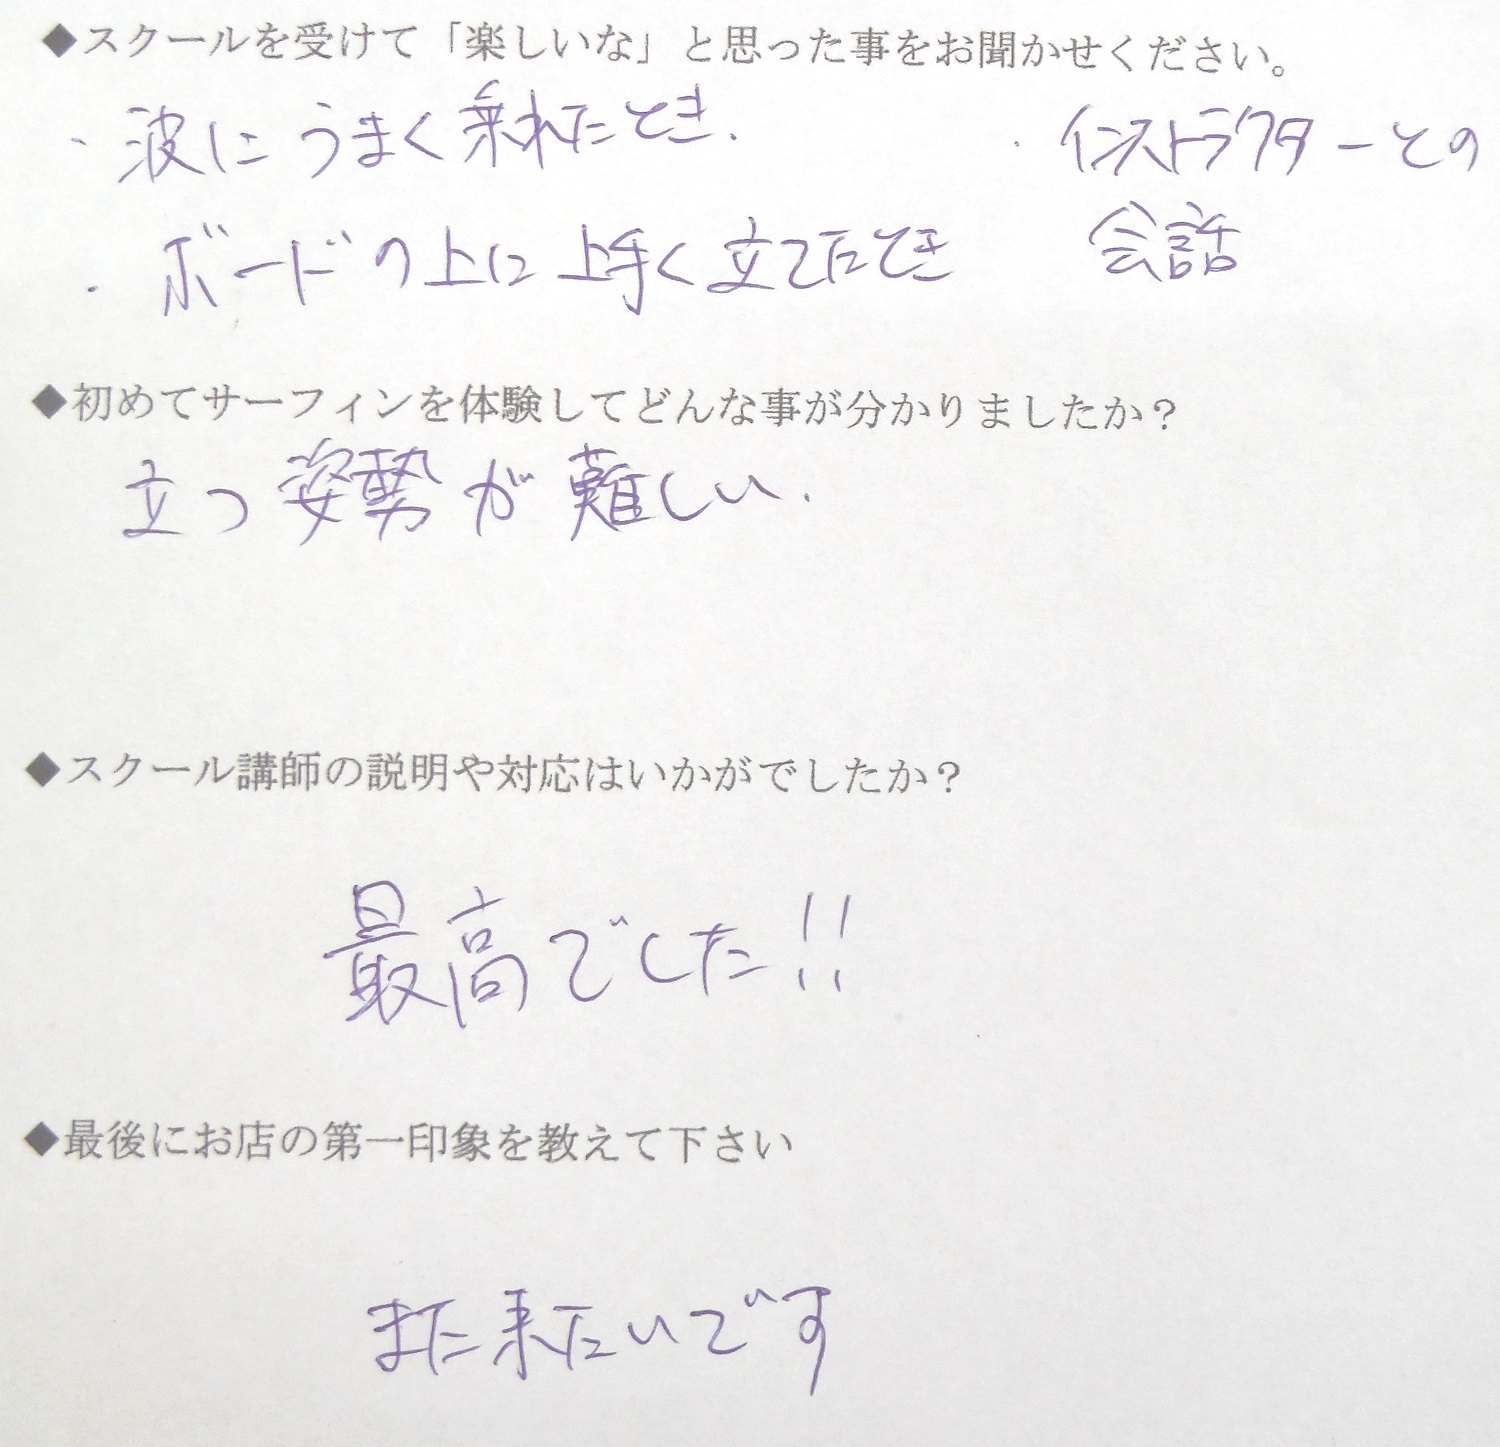 ◆スクールを受けて「楽しいな」と思った事をお聞かせください。
・波にうまく乗れたとき.
・ボードの上に上手く立てたとき
・インストラクターとの
会話
◆初めてサーフィンを体験してどんな事が分かりましたか？
立つ姿勢が難しい.
◆スクール講師の説明や対応はいかがでしたか？
最高でした!!
◆最後にお店の第一印象を教えて下さい
また来たいです